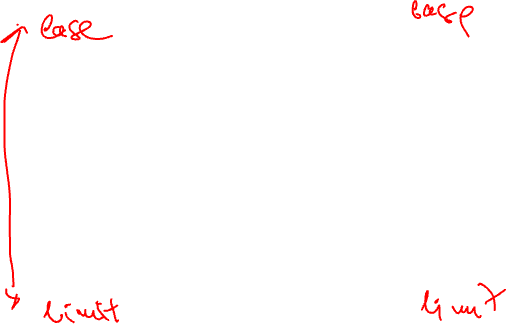 base
base
limit
limit